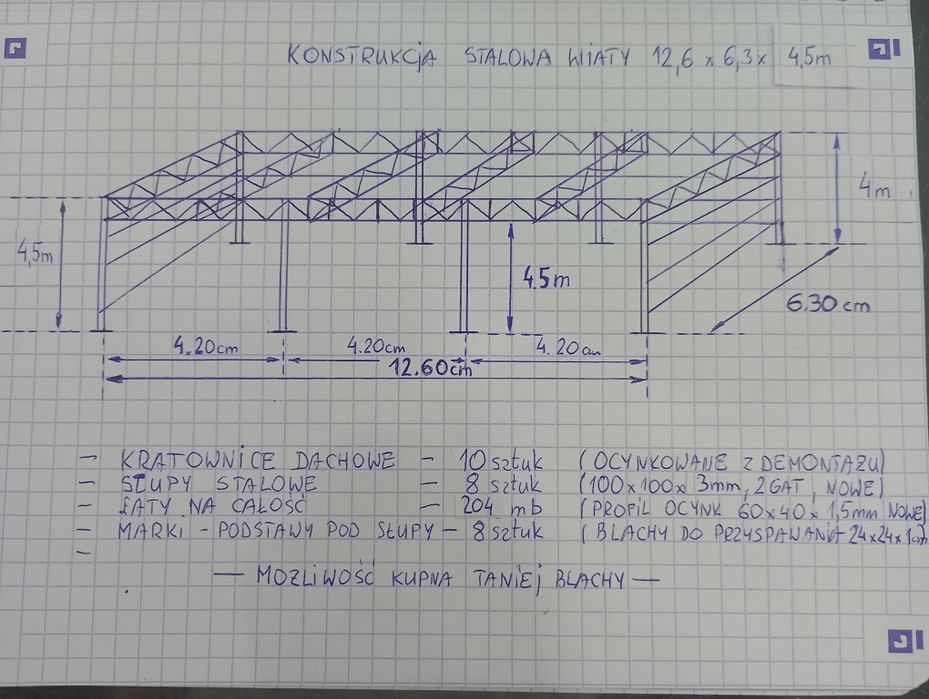 KONSTRUKCJA STALOWA WIATY 12,6 x 6,3 x 4,5m
4m
4,5m
4.5m
6.30 cm
4.20cm 4.20cm 4.20cm
12.60cm
- KRATOWNICE DACHOWE - 10 sztuk (OCYNKOWANE Z DEMONTAŻU)
- SŁUPY STALOWE - 8 sztuk (100x100x 3mm, 2GAT, NOWE)
- ŁATY NA CAŁOŚĆ - 204 mb (PROFIL OCYNK 60x40x1,5mm NOWE)
- MARKI - PODSTAWY POD SŁUPY - 8 sztuk (BLACHY DO PRZYSPAWANIA 24x24x1cm
-
- MOŻLIWOŚĆ KUPNA TANIEJ BLACHY -